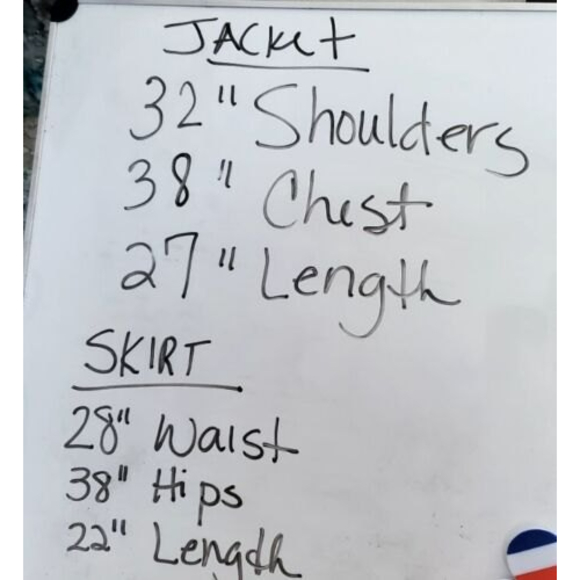 Jacket
32" Shoulders
38" Chest
27" Length
SKIRT
28" Waist
38" Hips
22" Length